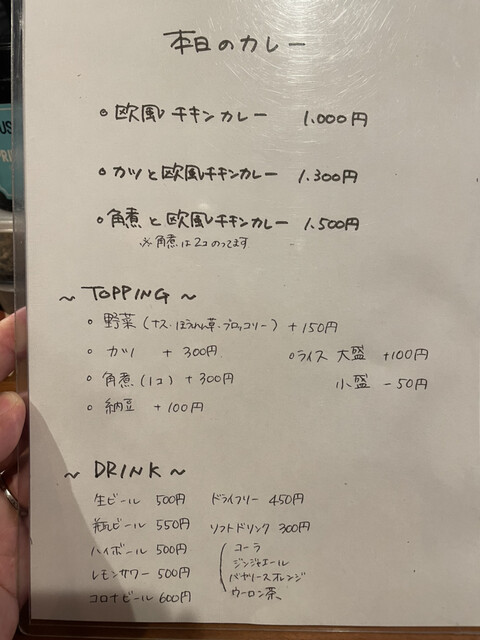 本日のカレー
○ 欧風チキンカレー 1.000円
○ カツと欧風チキンカレー 1.300円
○ 角煮と欧風チキンカレー 1.500円
※角煮は2コのってます
～ TOPPING ～
○ 野菜(ナス・ほうれん草・ブロッコリー) +150円
○ カツ +300円
○ライス 大盛 +100円
○ 角煮(1コ) +300円
小盛 -50円
○ 納豆 +100円
～ DRINK ～
生ビール 500円 ドライフリー 450円
瓶ビール 550円 ソフトドリンク 300円
ハイボール 500円 コーラ
ジンジャエール
レモンサワー 500円 バヤリースオレンジ
コロナビール 600円 ウーロン茶